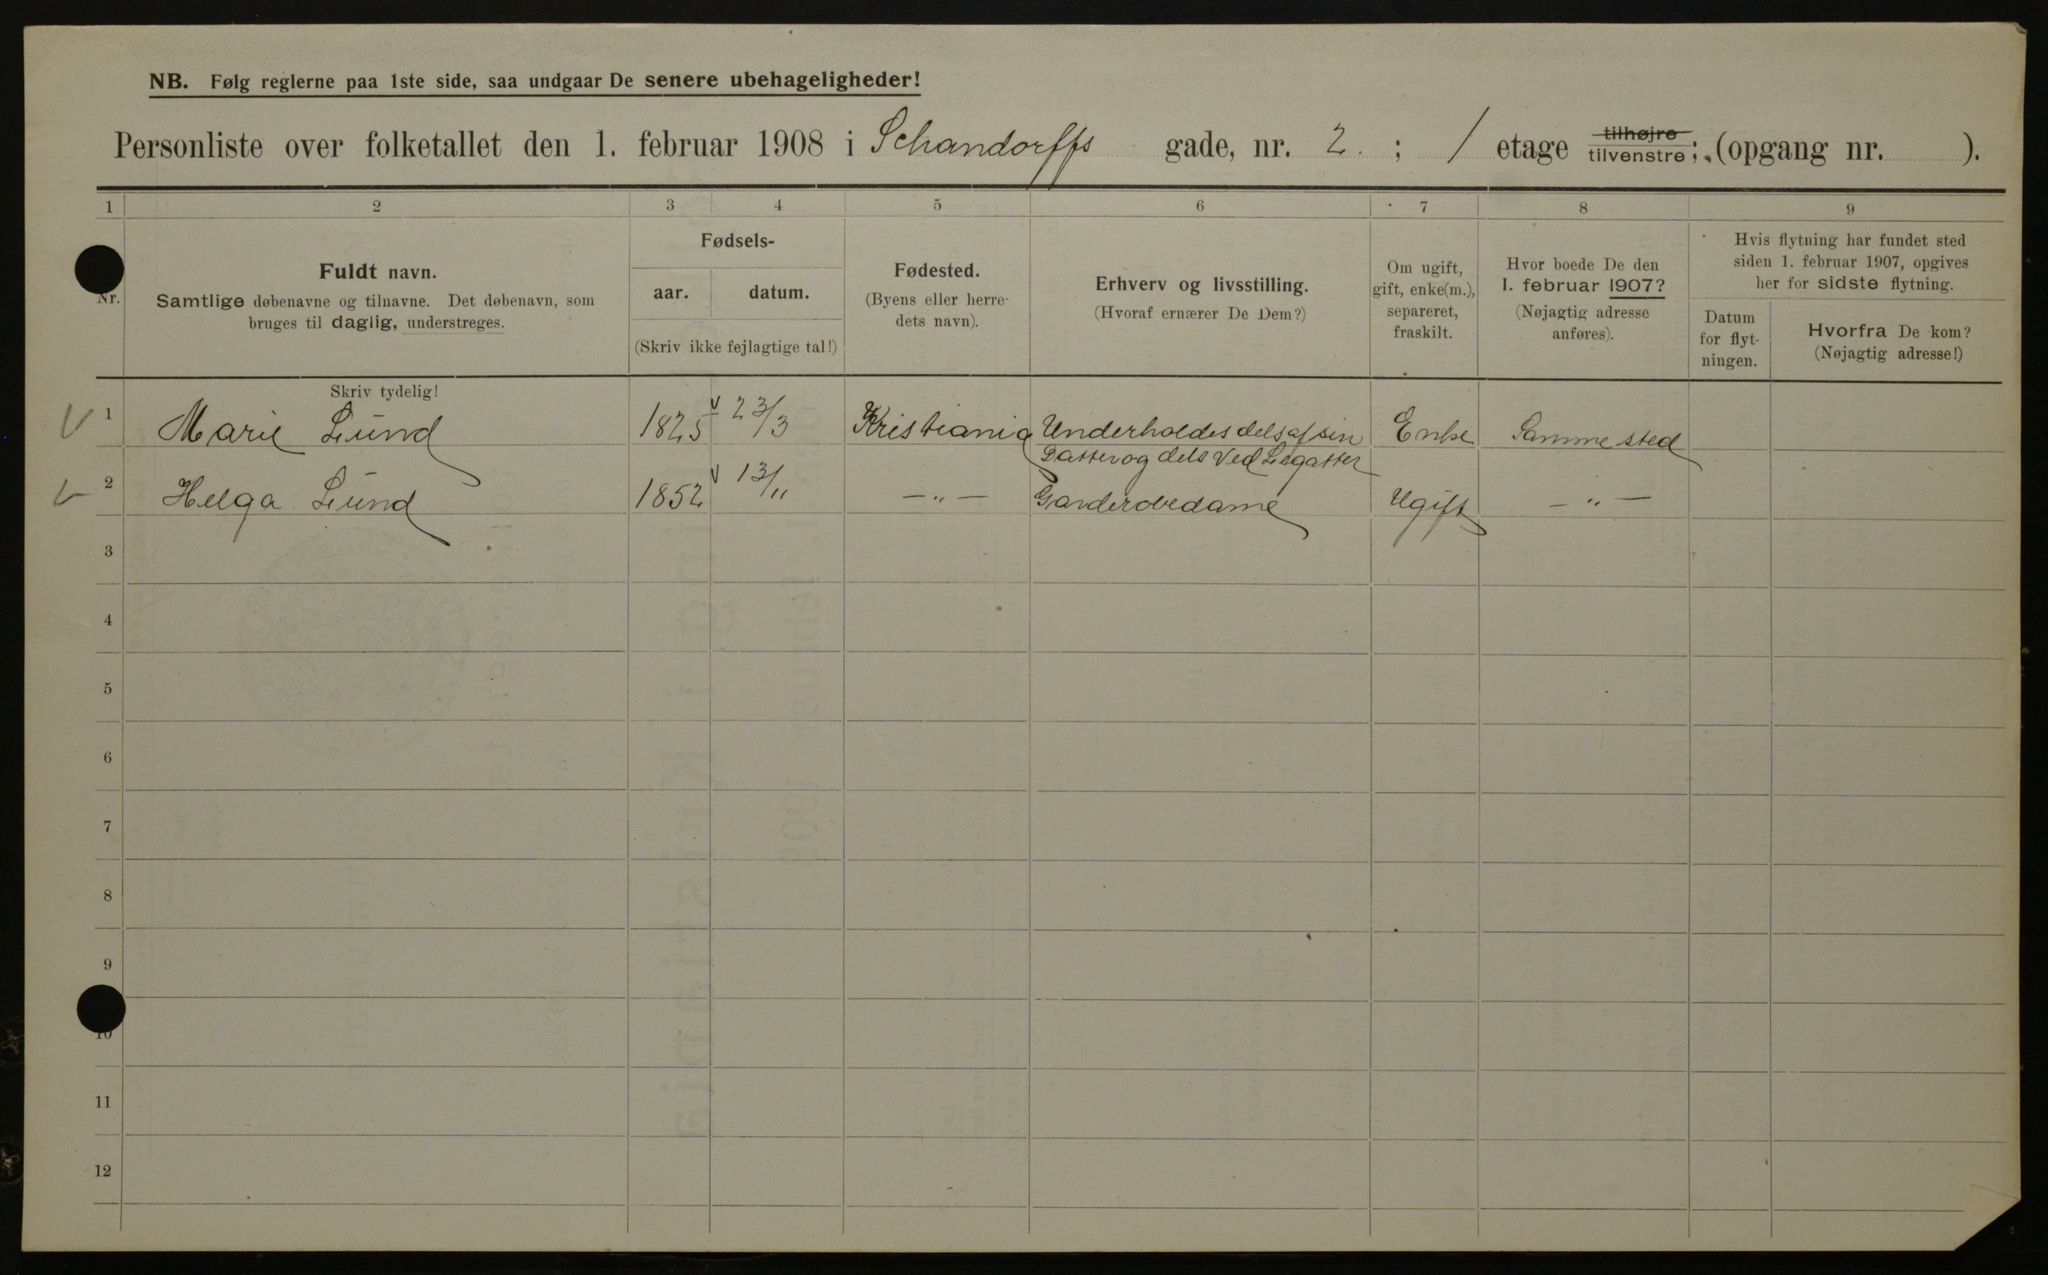 NB. Følg reglerne paa 1ste side, saa undgaar De senere ubehageligheder!
Personliste over folketallet den 1. februar 1908 i Schandorffs gade, nr. 2. ; 1 etage tilhøjre tilvenstre; (opgang nr. ).
1 2 3 4 5 6 7 8 9
Nr.
Fuldt navn.
Samtlige døbenavne og tilnavne. Det døbenavn, som
bruges til daglig, understreges.
Skriv tydelig!
Fødsels-
aar. datum.
(Skriv ikke fejlagtige tal!)
Fødested.
(Byens eller herre-
dets navn).
Erhverv og livsstilling.
(Hvoraf ernærer De Dem?)
Om ugift,
gift, enke(m.),
separeret,
fraskilt.
Hvor boede De den
1. februar 1907?
(Nøjagtig adresse
anføres).
Hvis flytning har fundet sted
siden 1. februar 1907, opgives
her for sidste flytning.
Datum
for flyt-
ningen.
Hvorfra De kom?
(Nøjagtig adresse!)
V 1 Marie Lund 1825 v 23/3 Kristiania Underholdes dels af sin Enke Samme sted
Datter og dels ved Legatter
V 2 Helga Lund 1852 v 13/11 — " — Garderobedame Ugift — " —
3
4
5
6
7
8
9
10
11
12